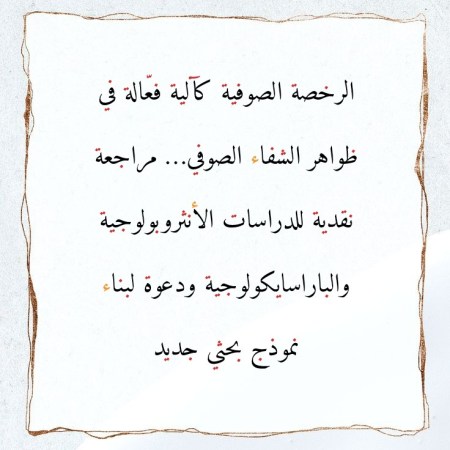 الرخصة الصوفية كآلية فعّالة في
ظواهر الشفاء الصوفي... مراجعة
نقدية للدراسات الأنثروبولوجية
والباراسايكولوجية ودعوة لبناء
نموذج بحثي جديد